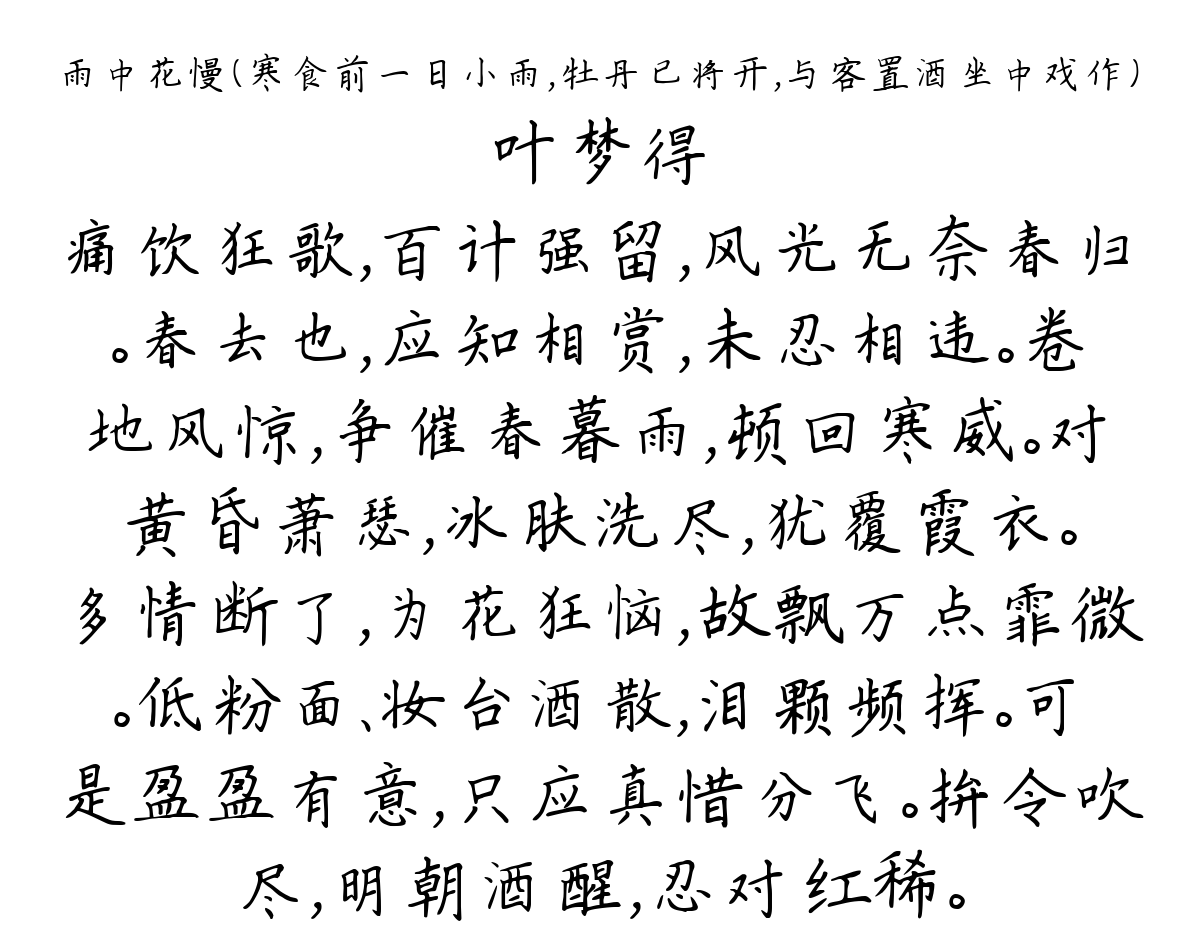 雨中花慢(寒食前一日小雨,牡丹已将开,与客置酒坐中戏作)
叶梦得
痛饮狂歌,百计强留,风光无奈春归
。春去也,应知相赏,未忍相违。卷
地风惊,争催春暮雨,顿回寒威。对
黄昏萧瑟,冰肤洗尽,犹覆霞衣。
多情断了,为花狂恼,故飘万点霏微
。低粉面、妆台酒散,泪颗频挥。可
是盈盈有意,只应真惜分飞。拚令吹
尽,明朝酒醒,忍对红稀。